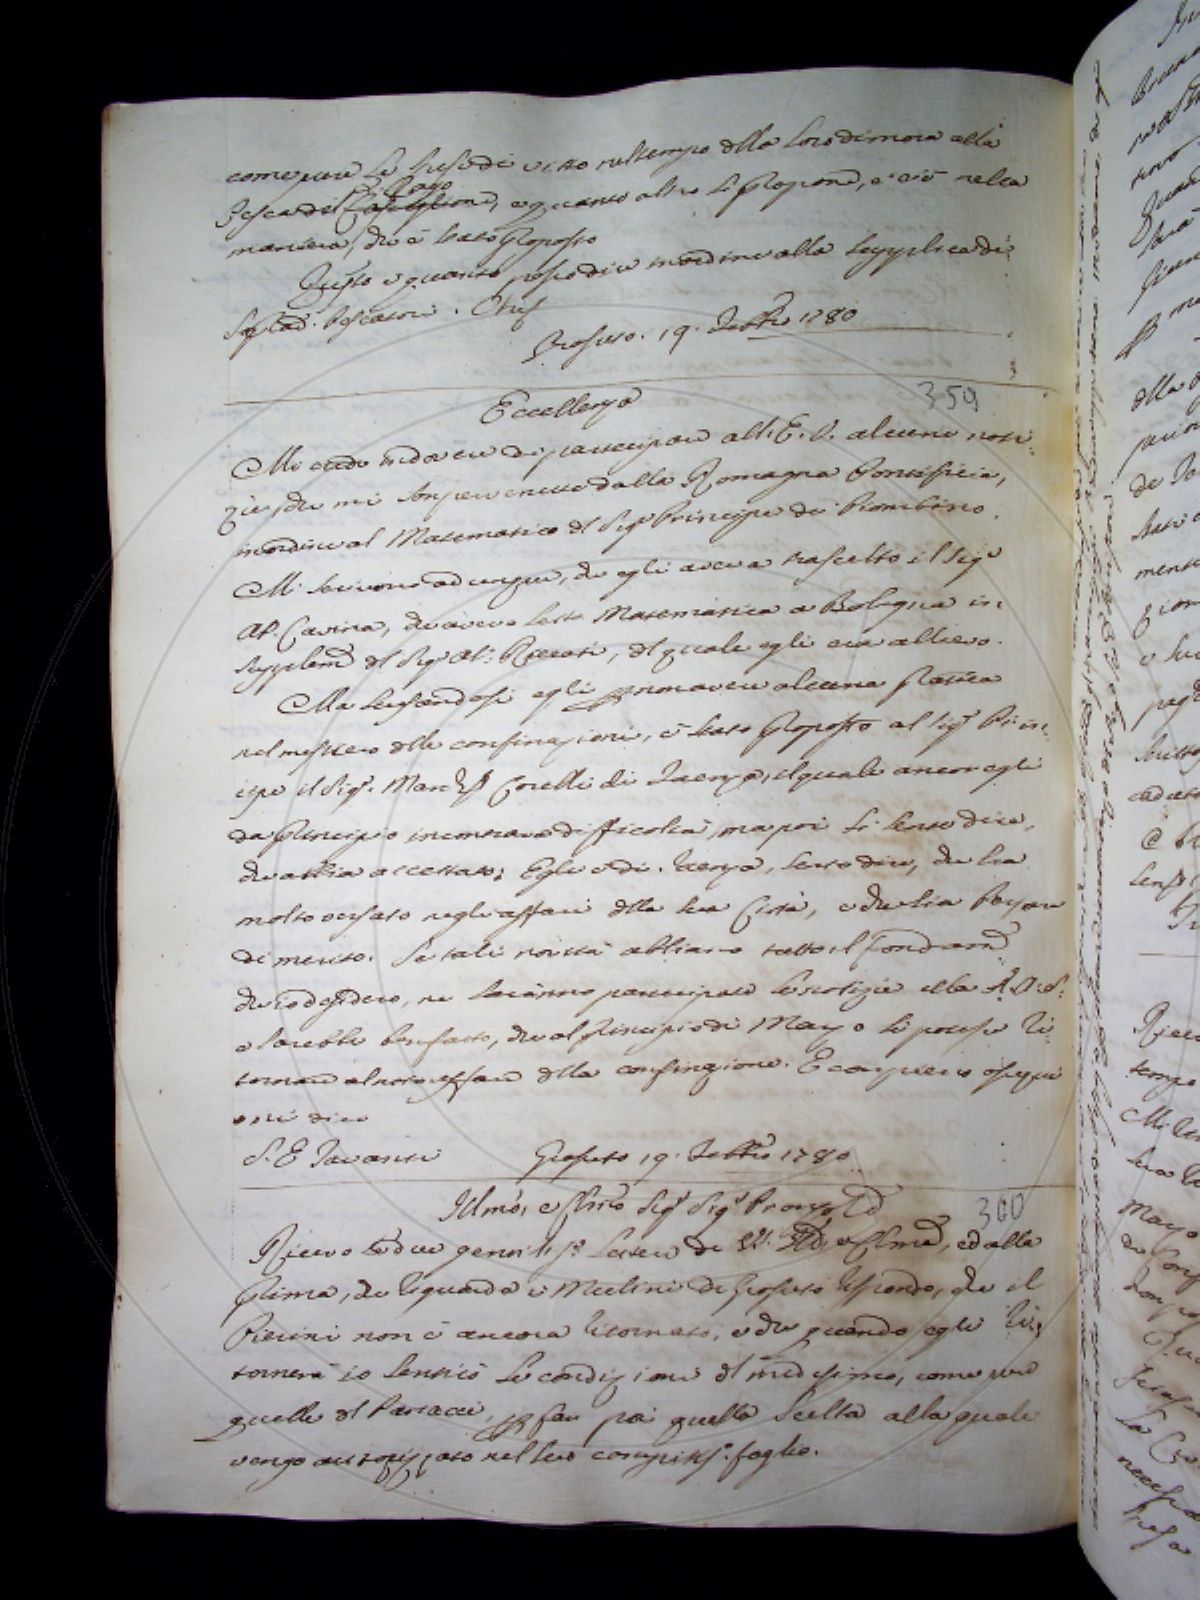 come pure le spese di vitto nel tempo della loro dimora alla
Pesca di Castiglione, e quanto altro si propone, e ciò nella
Lago
maniera, che è stato proposto
Questo è quanto posso dire in ordine alla supplica di
Pescatori.
Grosseto. 19. Febbro 1780
359
Eccellenza
Mi credo in dovere di partecipare all'E. V. alcune noti-
zie, che mi son pervenute dalla Romagna Pontificia,
in ordine al Matematico del Sigr Principe di Piombino.
Mi scrivono adunque, che egli aveva trascelto il Sigr
Ab. Cavina, che aveva letto Matematica a Bologna in
supplemto del Sigr Ab: Riccati, del quale egli era allievo.
Ma scusandosi egli per non avere alcuna pratica
nel mestiero delle confinazioni, è stato proposto al Sigr Prin-
cipe il Sigr. March Corelli di Faenza, il quale ancor egli
da principio incontrava difficoltà, ma poi si sente dire,
che abbia accettato; Egli è di Faenza, sento dire, che sia
molto versato negli affari della sua Città, e che sia Persona
di merito. Se tali novità abbiano tutto il fondamto
che io desidero, ne saranno partecipate le notizie alla A. V. S.
e sarebbe ben fatto, che al principio di Marzo si potesse ri-
tornare al noto affare della confinazione. E con pieno ossequi
o mi dico
S. E Tavanti Grosseto 19. Febbro 1780
360
Illmo, e Sigr Sigr Pron
Ricevo le due gentilisse lettere di ed alla
prima, che riguarda i Mulini di Grosseto rispondo, che il
Pierini non è ancora ritornato, e che quando egli ri-
tornerà io sentirò le condizioni del medesimo, come pure
quelle del per far poi quella scelta alla quale
vengo autorizzato nel suo compitisso foglio.